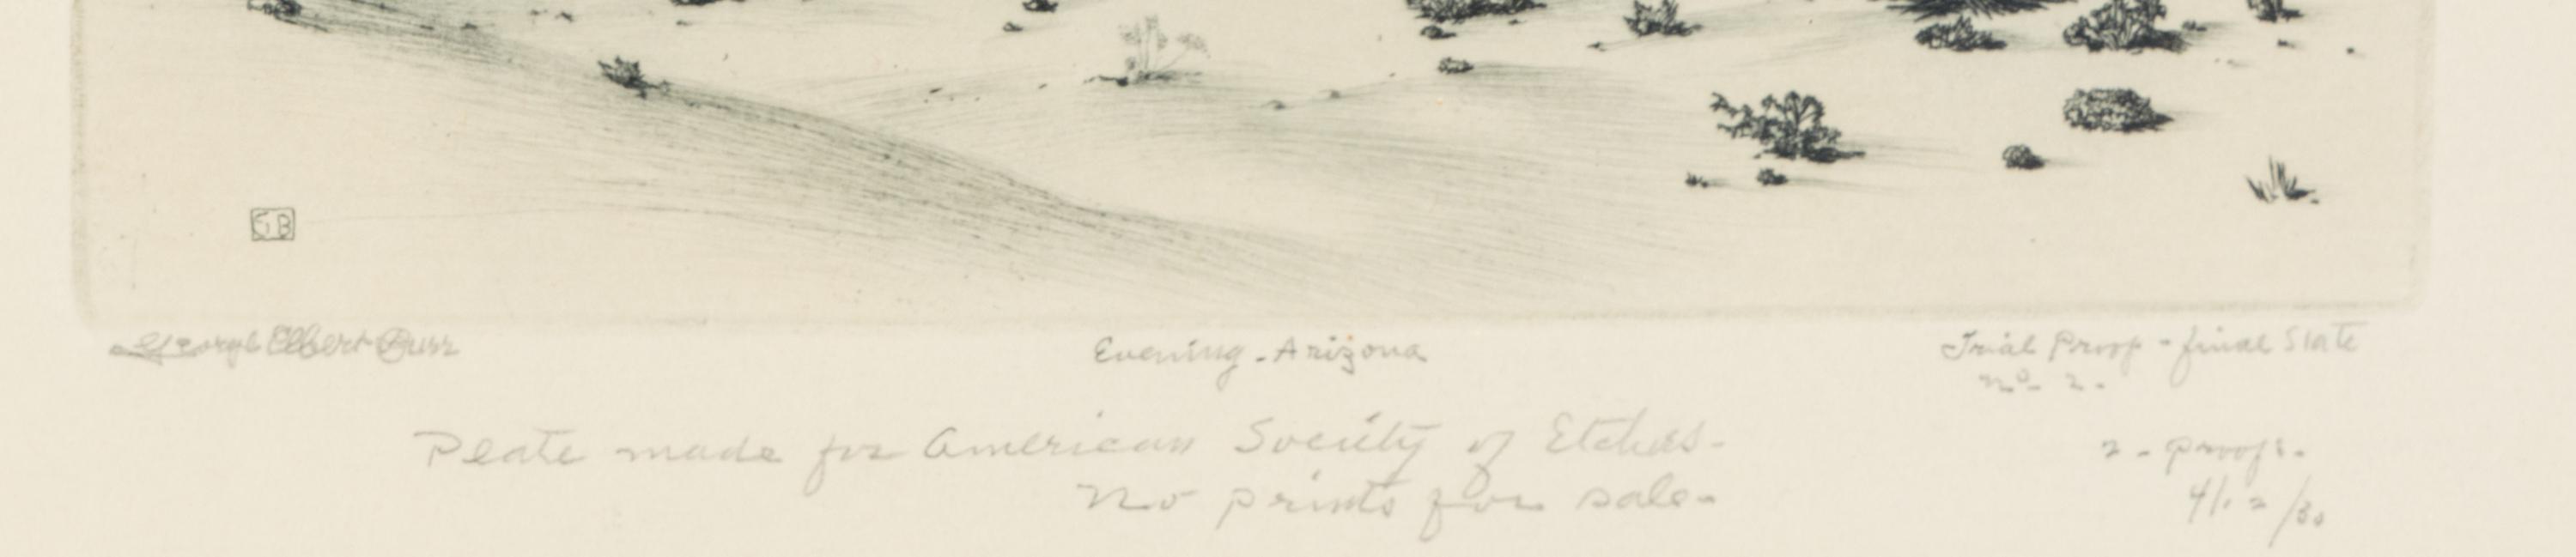 GB
George Elbert Burr
Evening - Arizona
Trial Proof - final State
No 2.
Plate made for American Society of Etchers -
No prints for sale -
2 - proofs.
4/12/30